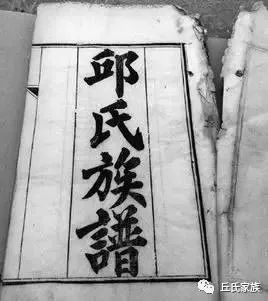 邱氏族譜
丘氏家族